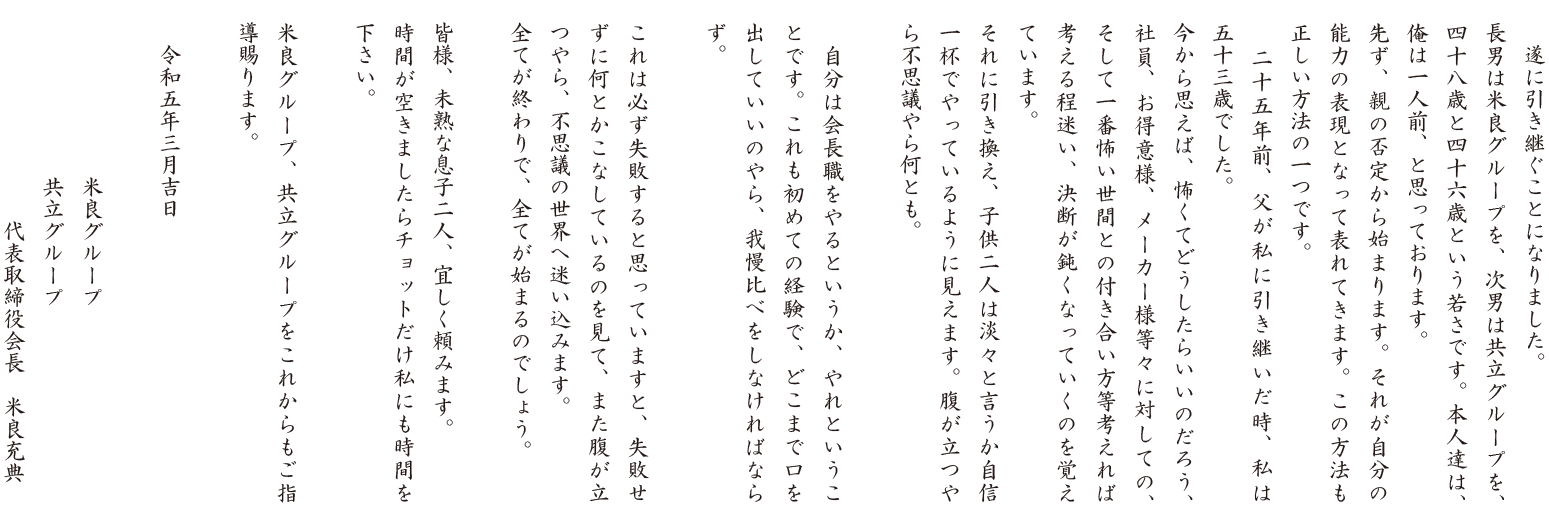 遂に引き継ぐことになりました。
長男は米良グループを、次男は共立グループを、
四十八歳と四十六歳という若さです。本人達は、
俺は一人前、と思っております。
先ず、親の否定から始まります。それが自分の
能力の表現となって表れてきます。この方法も
正しい方法の一つです。
二十五年前、父が私に引き継いだ時、私は
五十三歳でした。
今から思えば、怖くてどうしたらいいのだろう、
社員、お得意様、メーカー様等々に対しての、
そして一番怖い世間との付き合い方等考えれば
考える程迷い、決断が鈍くなっていくのを覚え
ています。
それに引き換え、子供二人は淡々と言うか自信
一杯でやっているように見えます。腹が立つや
ら不思議やら何とも。
自分は会長職をやるというか、やれというこ
とです。これも初めての経験で、どこまで口を
出していいのやら、我慢比べをしなければなら
ず。
これは必ず失敗すると思っていますと、失敗せ
ずに何とかこなしているのを見て、また腹が立
つやら、不思議の世界へ迷い込みます。
全てが終わりで、全てが始まるのでしょう。
皆様、未熟な息子二人、宜しく頼みます。
時間が空きましたらチョットだけ私にも時間を
下さい。
米良グループ、共立グループをこれからもご指
導賜ります。
令和五年三月吉日
米良グループ
共立グループ
代表取締役会長　米良充典